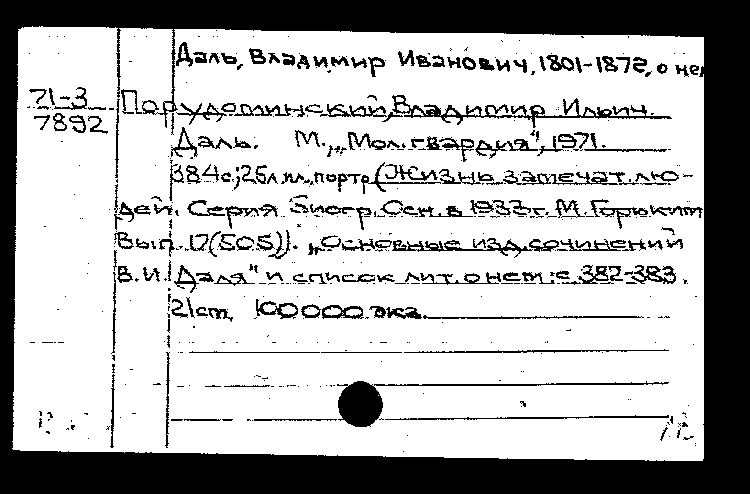 Даль, Владимир Иванович, 1801-1872, о нем
71-3
7892
Порудоминский, Владимир Ильич.
Даль. М., „Мол. гвардия", 1971.
384 с.; 25 л. ил., портр. (Жизнь замечат. лю-
дей. Серия биогр. Осн. в 1933 г. М. Горьким
Вып. 17(505)). „Основные изд. сочинений
В.И. Даля" и список лит. о нем: с. 382-383.
21 см. 100000 экз.